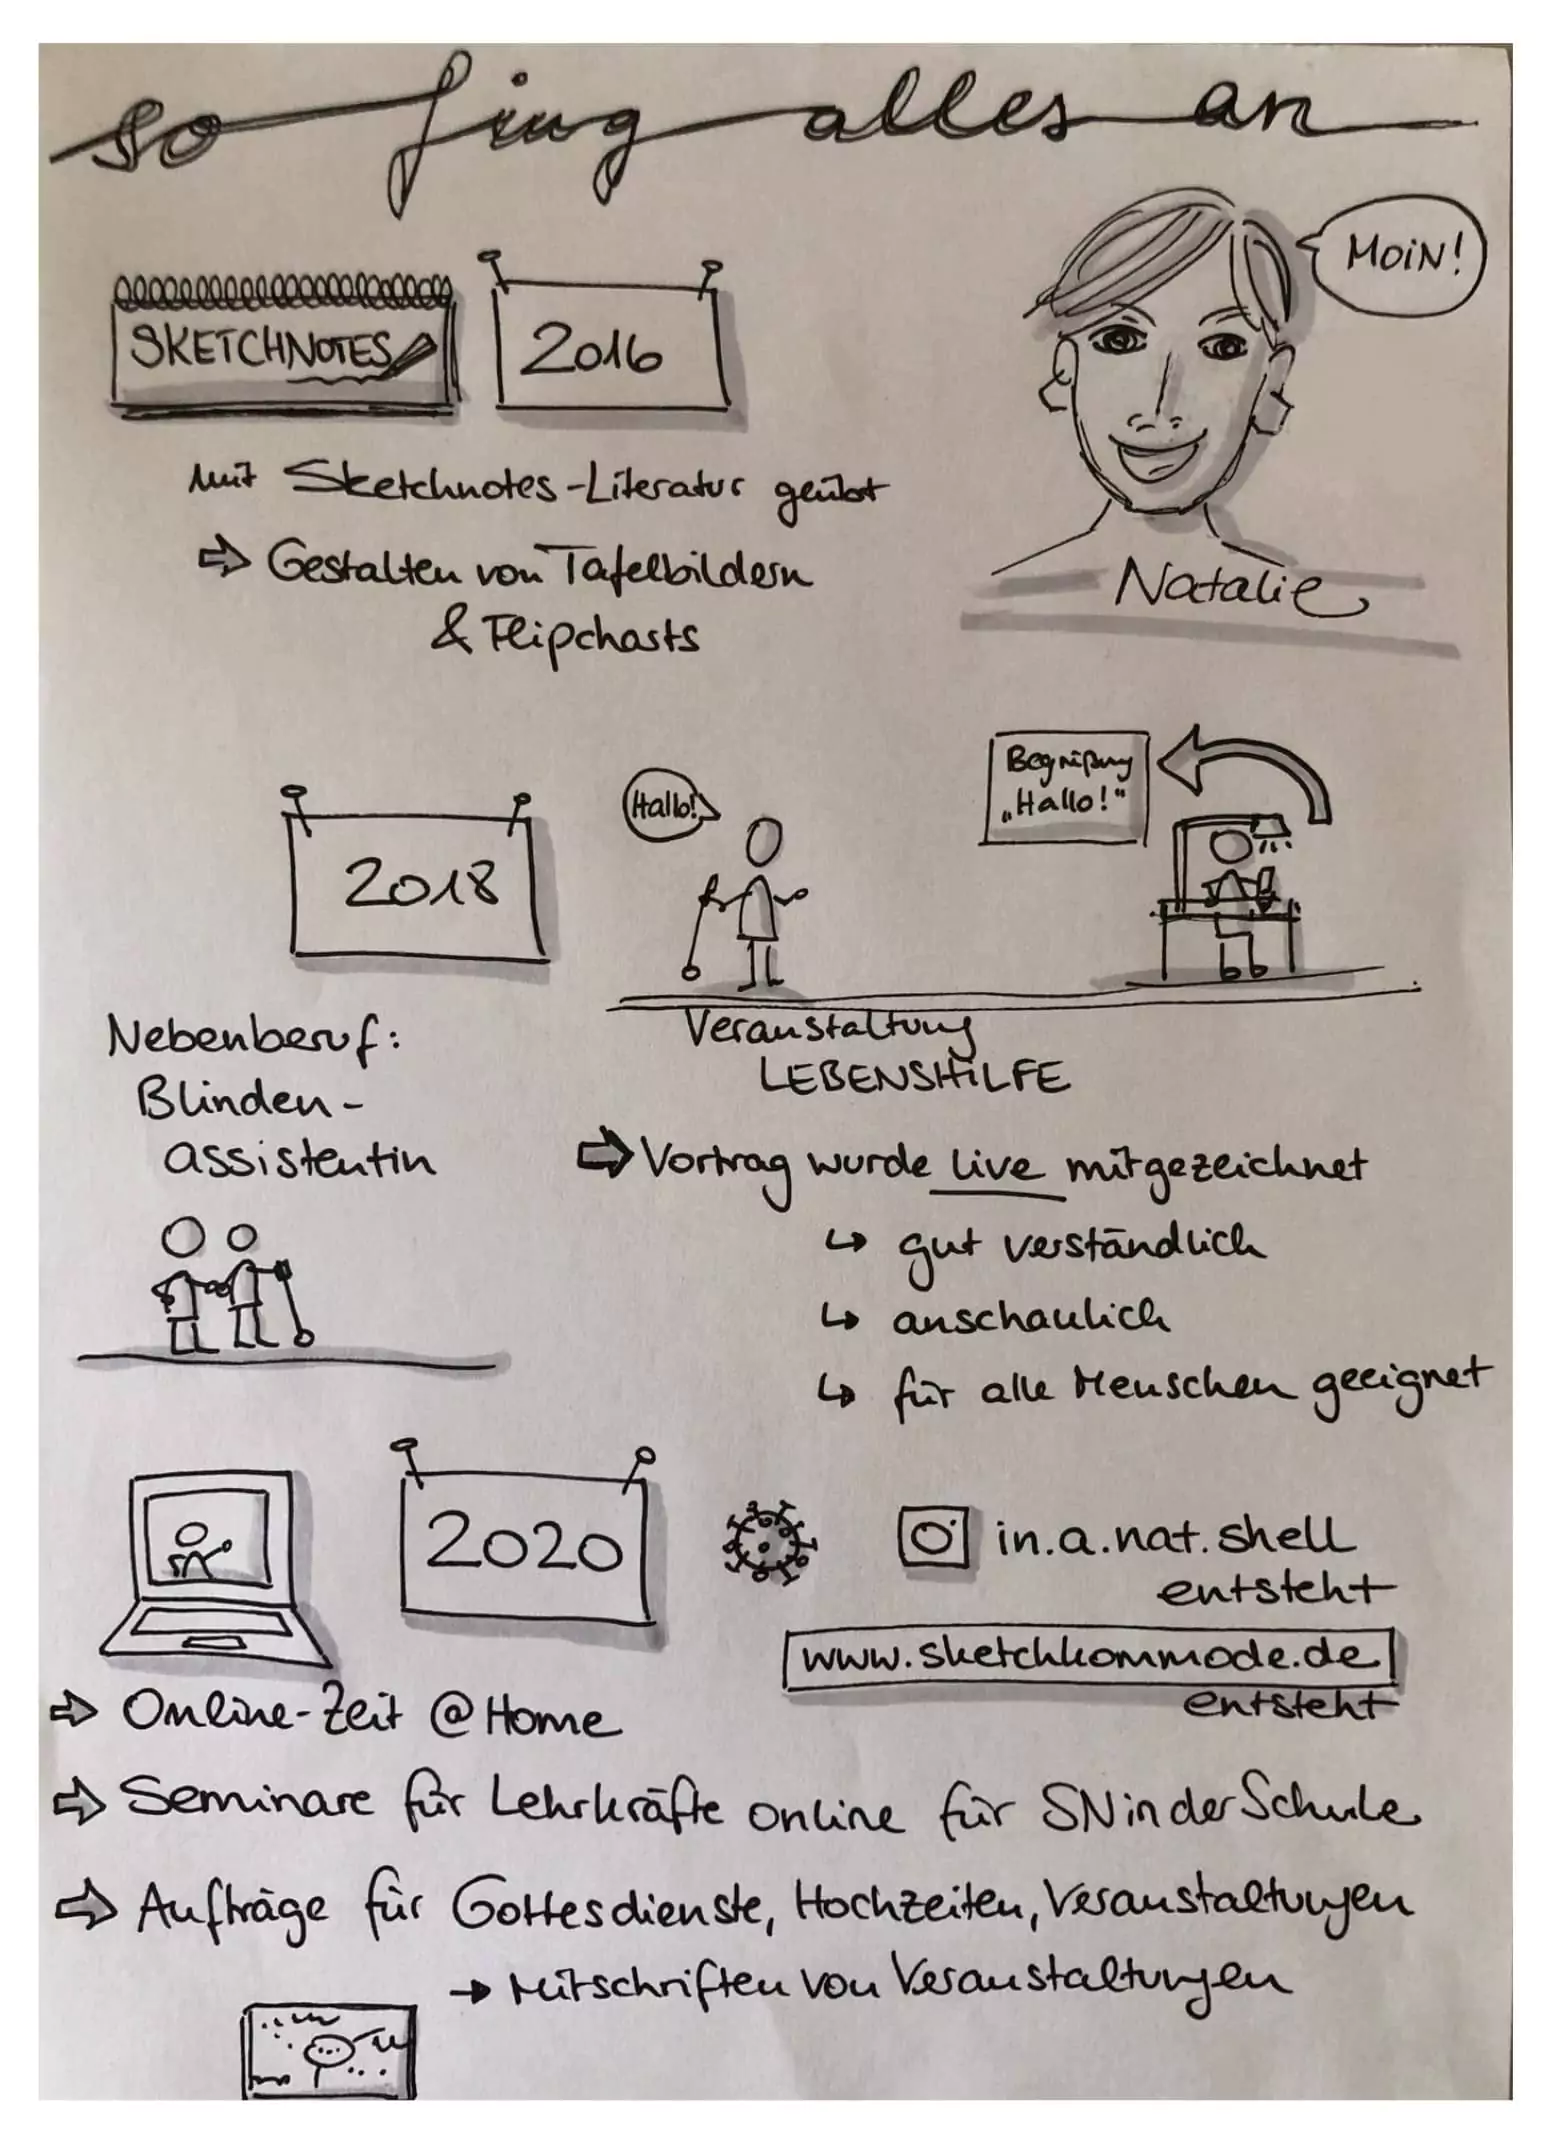 so fing alles an
MOIN!
SKETCHNOTES
2016
mit Sketchnotes-Literatur geübt
⇒ Gestalten von Tafelbildern
& Flipcharts
Natalie
2018
Hallo!
Begrüßung
„Hallo!“
Veranstaltung
LEBENSHILFE
Nebenberuf:
Blinden-
assistentin
⇒ Vortrag wurde live mitgezeichnet
↳ gut verständlich
↳ anschaulich
↳ für alle Menschen geeignet
2020
in.a.nat.shell
entsteht
www.sketchkommode.de
entsteht
⇒ Online-Zeit @Home
⇒ Seminare für Lehrkräfte online für SNinderSchule
⇒ Aufträge für Gottesdienste, Hochzeiten, Veranstaltungen
→ Mitschriften von Veranstaltungen